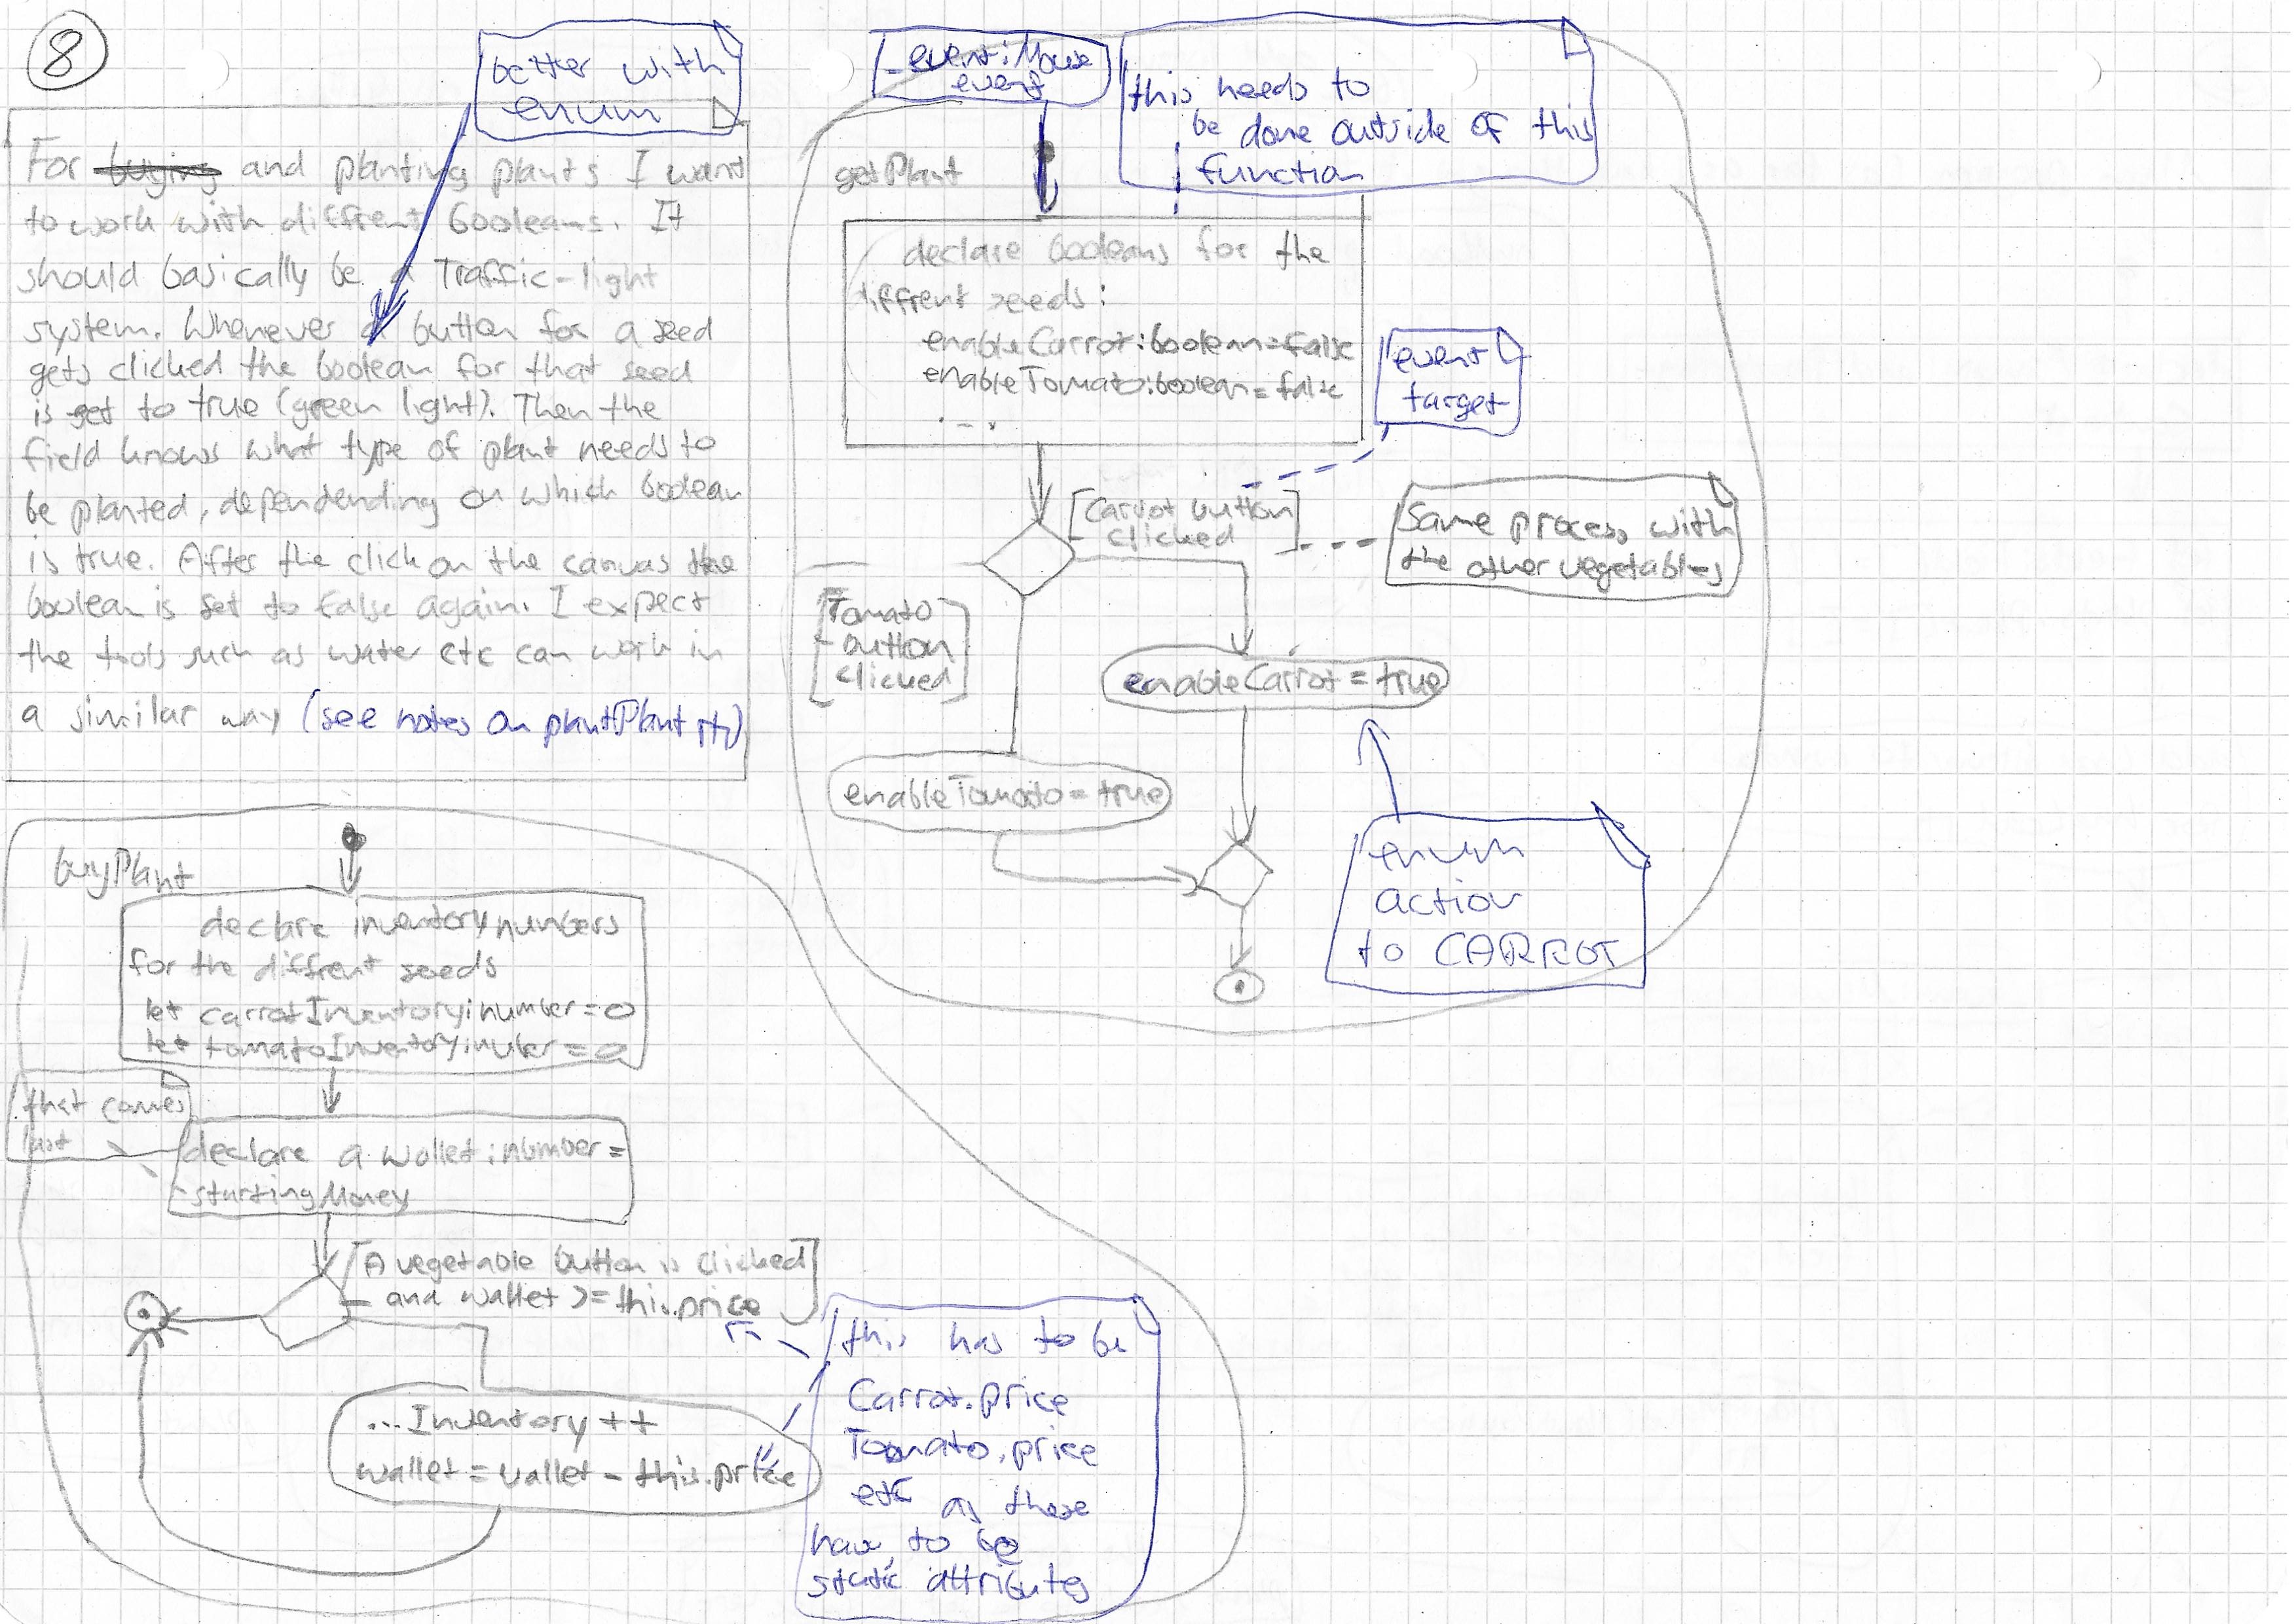 8
better with
enum
For buying and planting plants I want
to work with diffrent booleans. It
should basically be a Traffic-light
system. Whenever a button for a seed
gets clicked the boolean for that seed
is set to true (green light). Then the
field knows what type of plant needs to
be planted, dependending on which boolean
is true. After the click on the canvas the
boolean is set to false again. I expect
the tools such as water etc can work in
a similar way (see notes on plantPlant
_event:Mouse
event
this needs to
be done outside of this
function
getPlant
declare booleans for the
diffrent seeds:
enableCarrot:boolean=false
enableTomato:boolean=false
...
event
target
[Carrot button
clicked]
Same process with
the other vegetables
[Tomato
button
clicked]
enableCarrot = true
enableTomato = true
enum
action
to CARROT
buyPlant
declare inventory numbers
for the diffrent seeds
let carrotInventory:number=0
let tomatoInventory:nuber=0
that comes
last
declare a wallet:number=
startingMoney
[A vegetable button is clicked
and wallet >= this.price]
...Inventory ++
wallet = wallet - this.price
this has to be
Carrot.price
Tomato.price
etc as these
have to be
static attributes